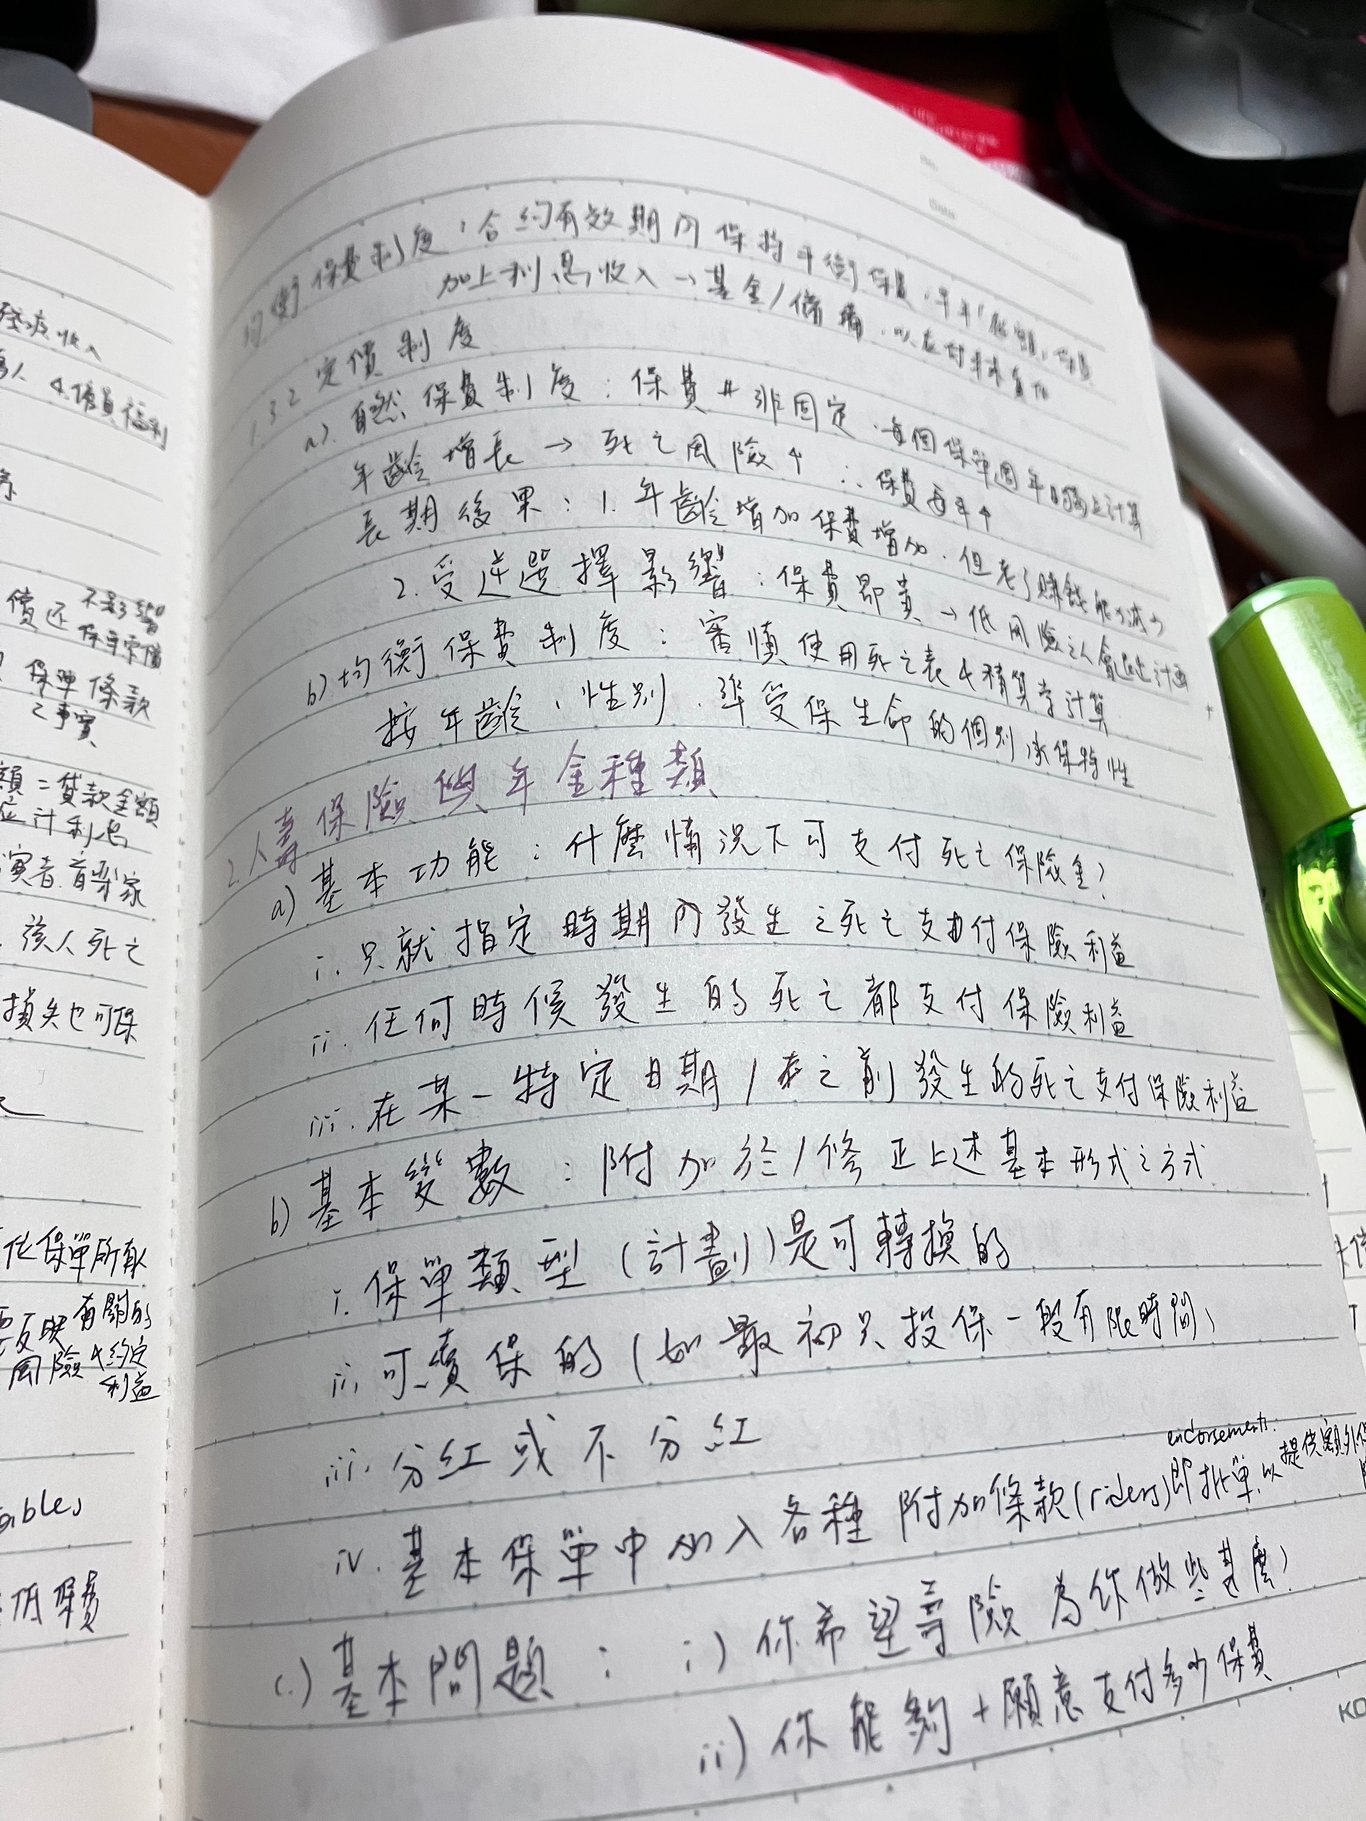 發疾收入
4. 僱員福利
償還 不是了
保單條款
之事實
額=貸款金額
計利息
演者.音樂家
該人死亡
損失也可保
保單所
反映有關的
風險+約定
利益
低保費
均衡保費制度:合約有效期內保持平衡保費.早年
加上利息收入→基金/儲備.以應付未來負担
1.3.2 定價制度
a). 自然保費制度:保費并非固定.每個保單週年日酌上計算
年齡增長→死亡風險↑ ∴保費每年↑
長期後果:1. 年齡增加保費增加.但老了賺錢能力減少
2. 受逆選擇影響:保費昂貴→低風險之人會退出計劃
b) 均衡保費制度:審慎使用死亡表+精算學計算
按年齡、性別.準受保生命的個別承保特性
2.人壽保險與年金種類
a) 基本功能:什麼情況下可支付死亡保險金?
i. 只就指定時期內發生之死亡支付保險利益
ii. 任何時候發生的死亡都支付保險利益
iii. 在某一特定日期/在之前發生的死亡支付保險利益
b) 基本變數:附加於/修正上述基本形式之方式
i. 保單類型(計劃)是可轉換的
ii. 可續保的(如最初只投保一段有限時間)
iii. 分紅或不分紅
endorsements
iv. 基本保單中加入各種附加條款(riders)即批單.以提供額外保
c.) 基本問題: i) 你希望壽險為你做些甚麼?
ii) 你能夠+願意支付多少保費